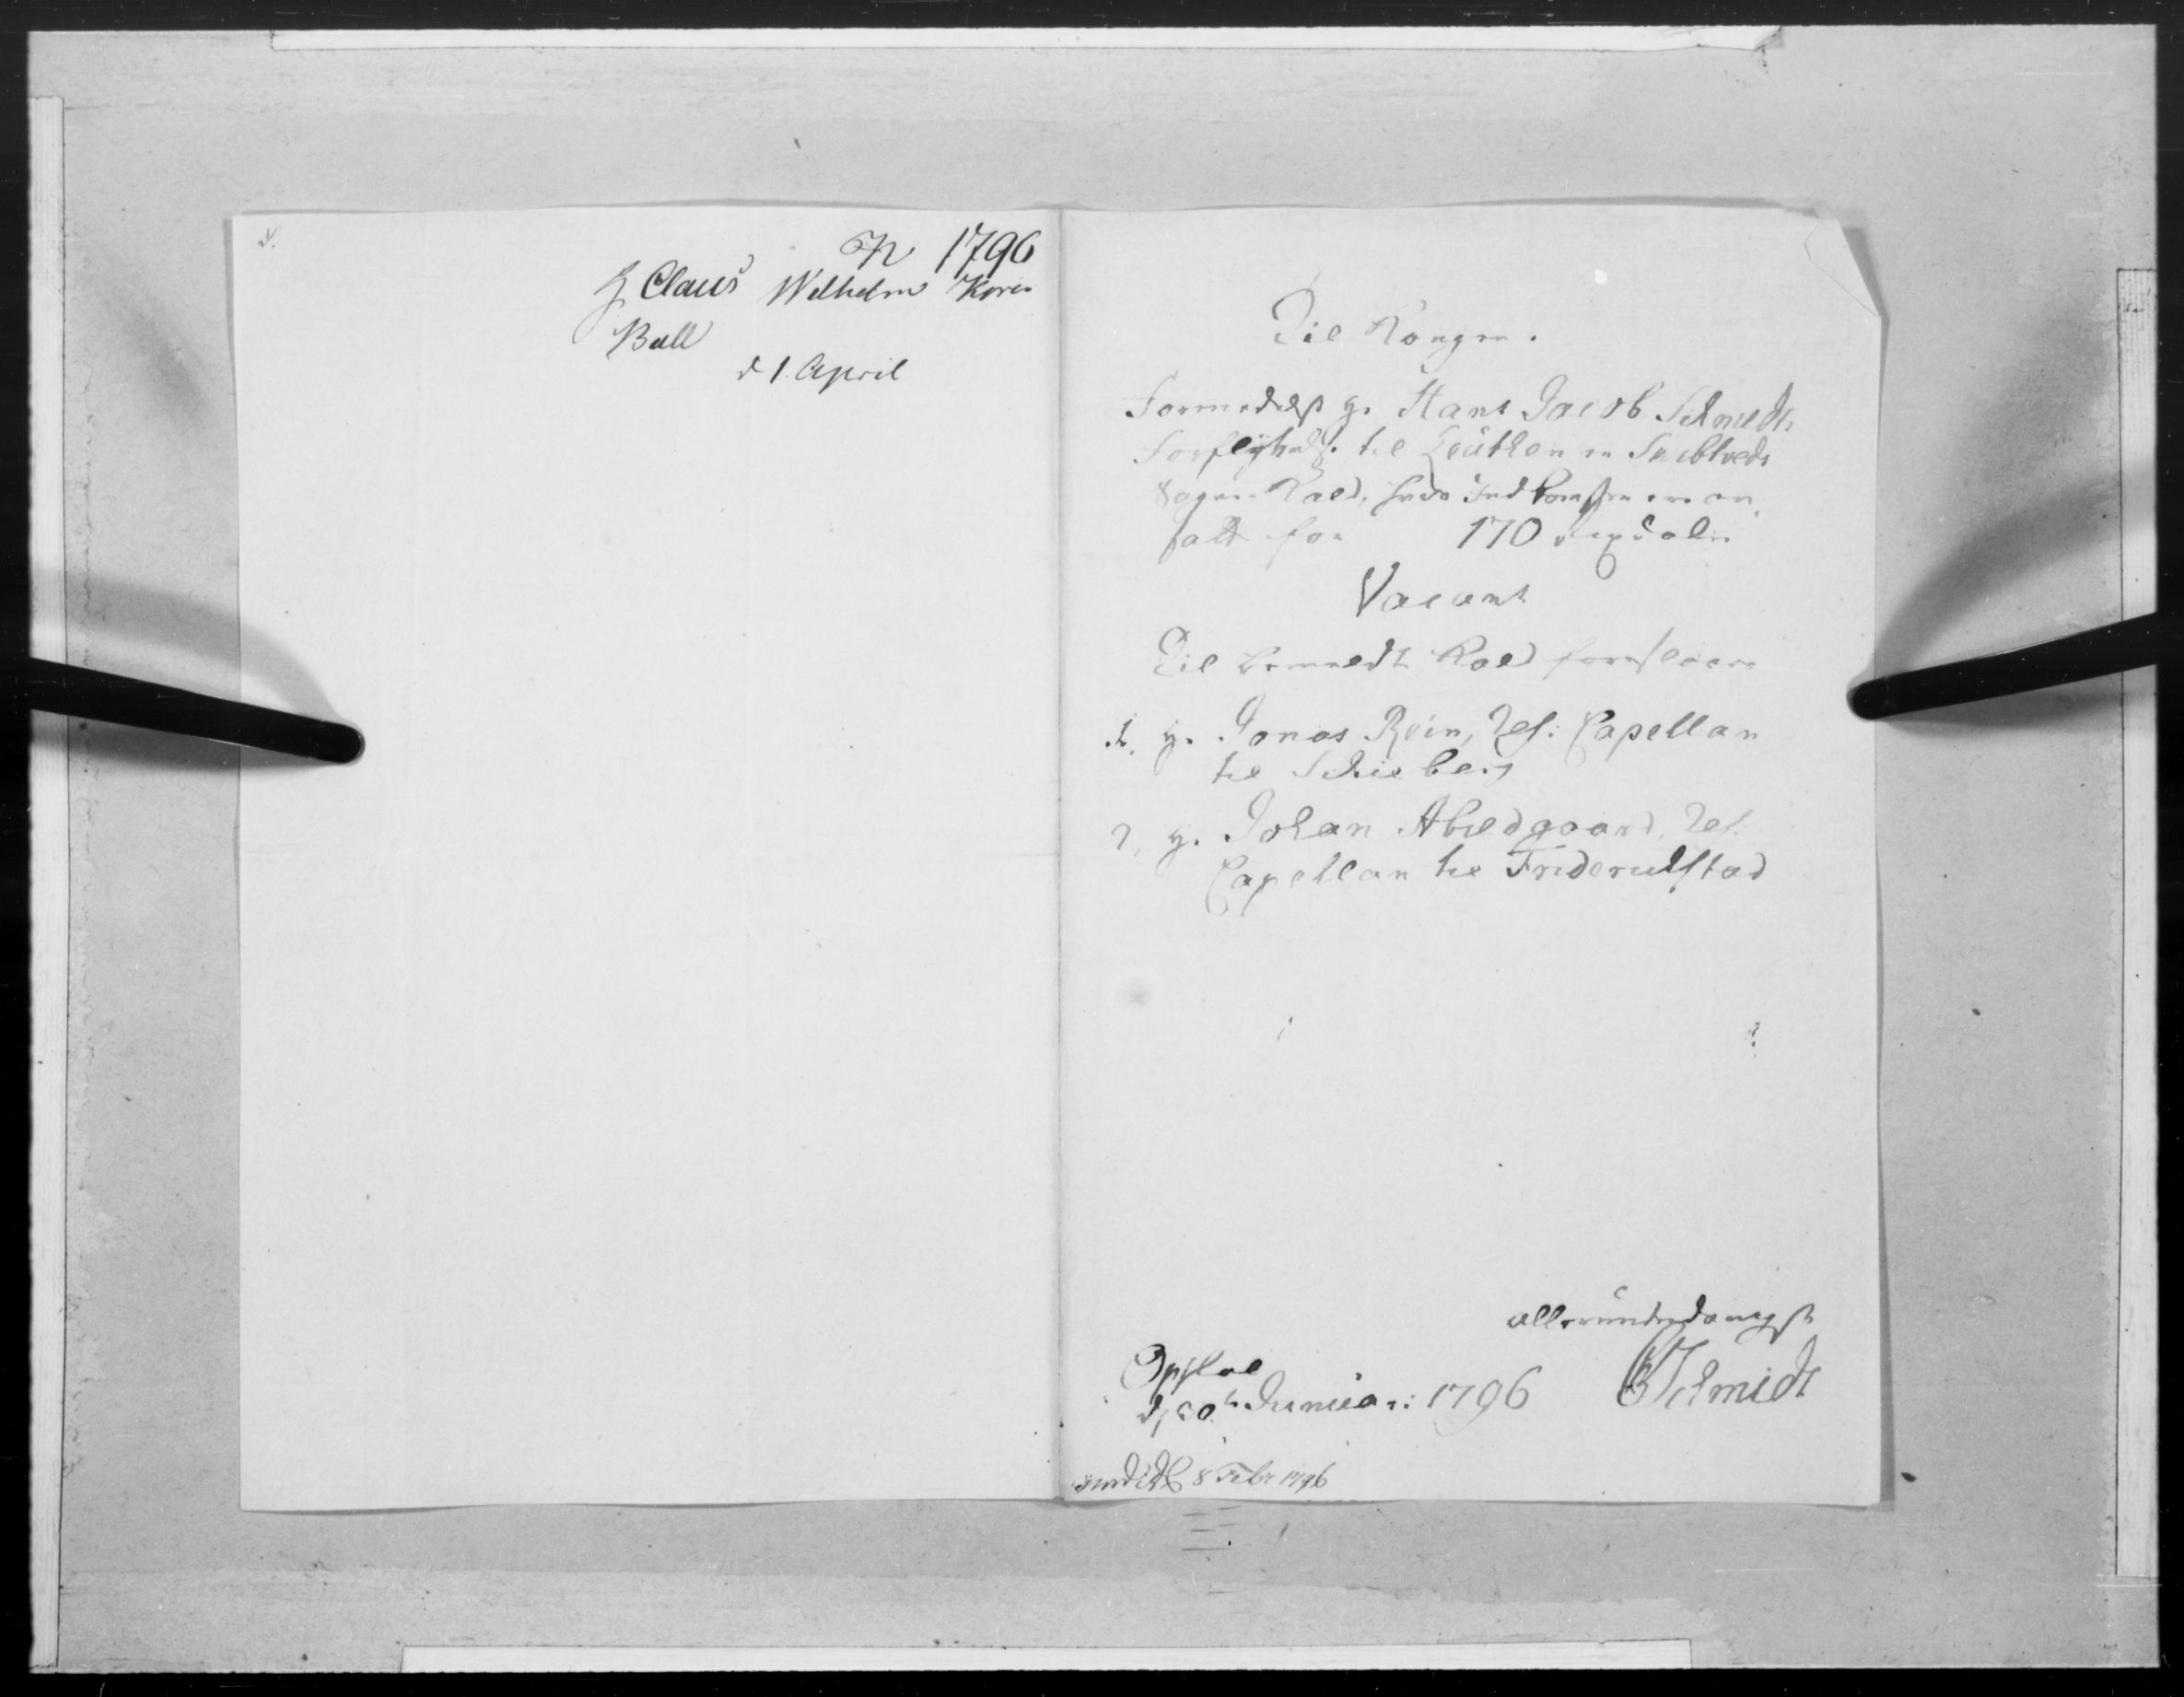 N 1796
H Claus Wilhelm Koren
Bull
d 1. April
Til Kongen.
Formedelst Hr. Hans Jacob Schmidts
Forflyttelse til Leuthen er Snebtveds
Sogne-Kald, hvis Indkomster er an-
satt for 170 Rixdaler
Vacant
Til bemeldte Kald foreslaaes
1, Hr. Jonas Rein, Res: Capellan
til Schieberg
2, Hr. Johan Abildgaard, Res.
Capellan til Friderichstad
allerunderdanigst
Opsloe
d, 20de Januar: 1796 Schmidt
8 Febr 1796